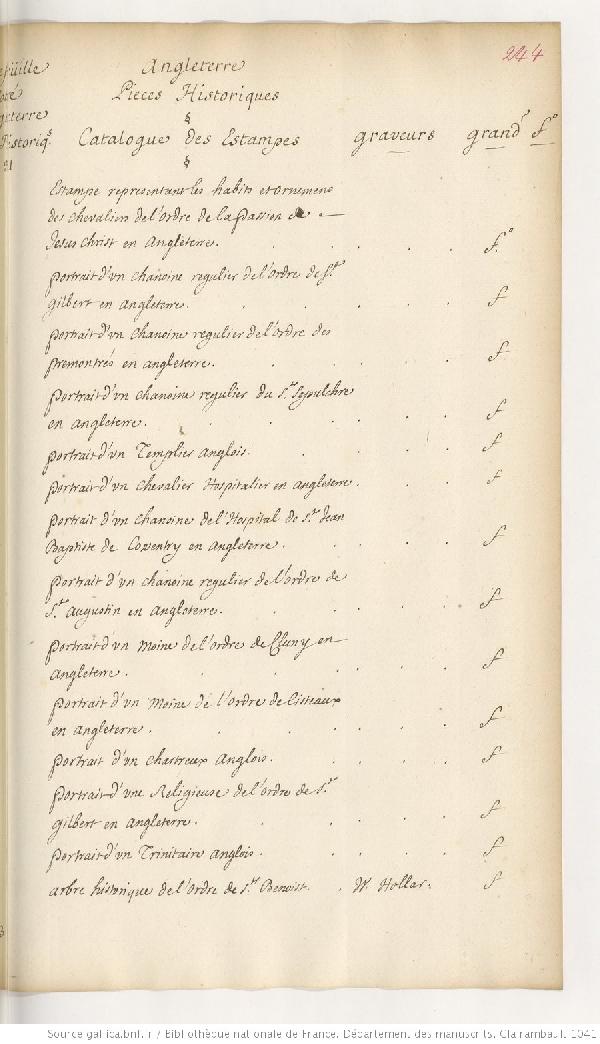 244
Angleterre
Pieces Historiques
§
Catalogue des Estampes graveurs grand fo
§
Estampe representant les habits et ornemens
des chevaliers de l'ordre de la Passion de
Jesus Christ en Angleterre. fo
portrait d'un chanoine regulier de l'ordre de St
gilbert en angleterre. f
portrait d'un chanoine regulier de l'ordre des
premontrés en angleterre. f
portrait d'un chanoine regulier du St Sepulchre
en angleterre. f
portrait d'un Templier anglois. f
portrait d'un chevalier Hospitalier en angleterre. f
portrait d'un chanoine de l'Hospital de St Jean
Baptiste de Coventry en angleterre. f
portrait d'un chanoine regulier de l'ordre de
St augustin en angleterre. f
portrait d'un moine de l'ordre de Cluny en
angleterre. f
portrait d'un moine de l'ordre de Cisteaux
en angleterre. f
portrait d'un chartreux anglois. f
portrait d'une Religieuse de l'ordre de St
gilbert en angleterre. f
portrait d'un Trinitaire anglois. f
arbre historique de l'ordre de St Benoist. W. Hollar. f
Source gallica.bnf.fr / Bibliothèque nationale de France. Département des manuscrits. Clairambault 1041